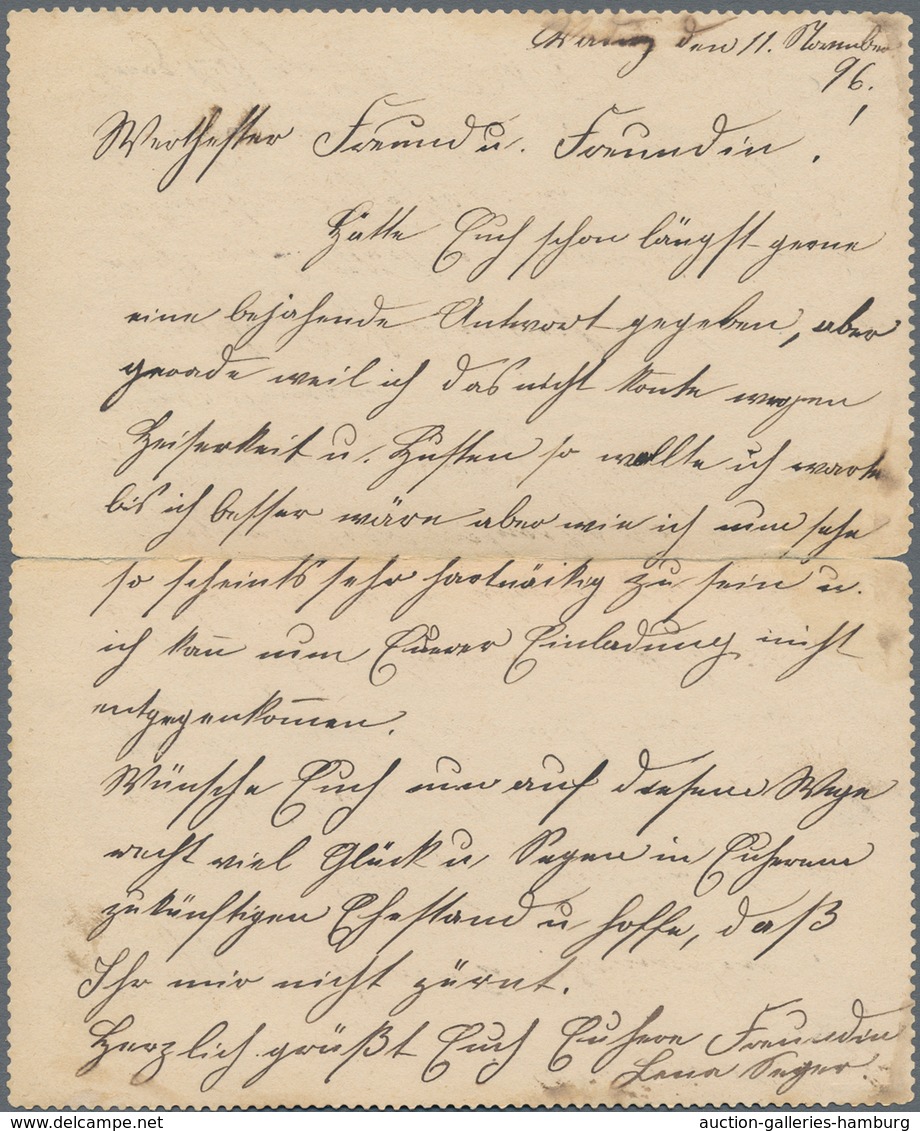 Vaduz den 11. November
96.
Werthester Freund u. Freundin!
Hätte Euch schon längst gerne
eine bejahende Antwort gegeben, aber
gerade weil ich das nicht konte wegen
Heiserkeit u. Husten so wollte ich warte
bis ich besser wäre aber wie ich nun sehe
so scheints sehr hartnäikg zu sein u.
ich kan̅ nun Euerer Einladung nicht
entgegenkom̅en.
Wünsche Euch nur auf diesem Wege
recht viel Glück u, Segen in Euherem
zukünftigen Ehestand u hoffe, daß
Ihr mir nicht zürnt.
Herzlich grüßt Euch Euhere Freundin
Lena Seger.
auction-galleries-hamburg